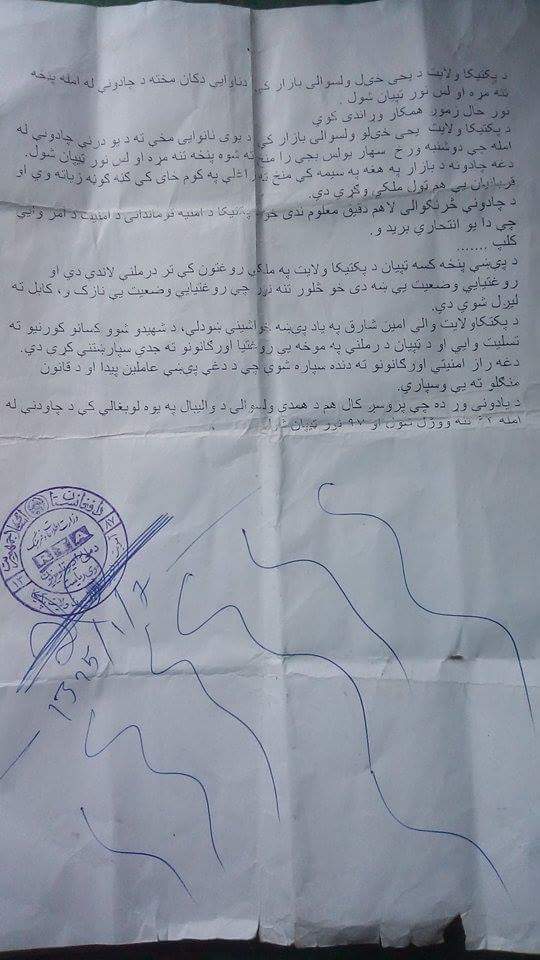 د پکتیکا ولایت د یحی خیل ولسوالی بازار کې دناوایي دکان مخته د چاودنې له امله پنځه
تنه مړه او لس نور ټپیان شول .
نور حال زمور همکار وړاندی کوي
د پکتیکا ولایت یحی خیلو ولسوالی بازار کې د یوی نانوایی مخې ته د یو درنې چاودنې له
امله چې دوشنبه ورځ سهار یولس بجې را منځ ته شوه پنځه تنه مړه او لس نور ټپیان شول.
دغه چاودنه د بازار په هغه په سیمه کې منځ ته راغلې په کوم ځای کې ګنه ګونه زیاته وي او
قربانیان یې هم ټول ملکي وګړي دي.
د چاودنې څرنګوالی لاهم دقیق معلوم ندی خو د پکتیکا د امنیه قوماندانی د امنیت د آمر وایي
چې دا یو انتحاري برید و.
کلپ .......
د پيښي پنځه کسه ټپیان د پکتیکا ولایت په ملکي روغتون کې تر درملنې لاندی دي او
روغتیايي وضعیت یې ښه دی خو څلور تنه نور چې روغتیايي وضعیت یې نازک و، کابل ته
لیږل شوي دي.
د پکتکاولایت والي امین شارق په یاد پیښه خواشیني ښودلې، د شهیدو شوو کسانو کورنیو ته
تسلیت وایي او د ټپیان د رملنې په موخه یې روغتیا اورګانونو ته جدي سپارښتنې کړی دي.
دغه راز امنیتي اورګانونو ته دنده سپاره شوی چې د دغې پیښې عاملین پیدا او د قانون
منګلو ته یې وسپاري.
د یادونی وړ ده چې پروسږ کال هم د همدی ولسوالی د والیبال په یوه لوبغالي کې د چاودنې له
امله تنه ووژل شول او ۹۷ نور ټپیان شول
افغانستان
1325/1/7